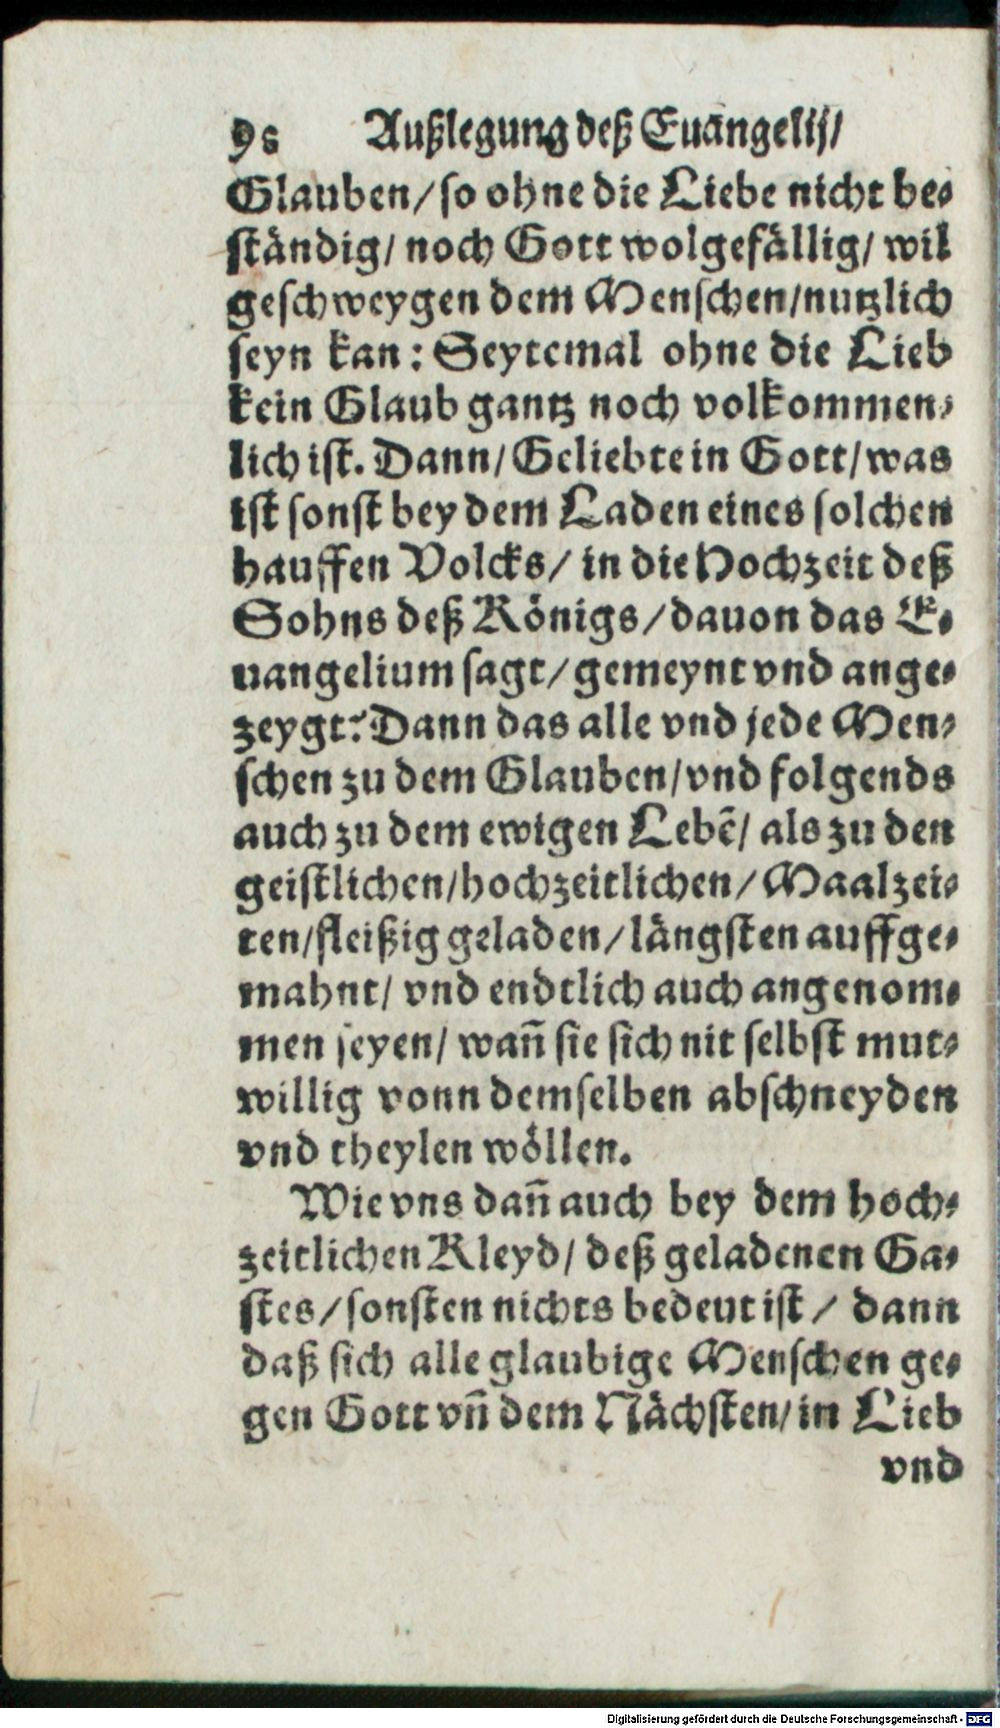 98 Außlegung deß Euangelij/
Glauben/so ohne die Liebe nicht be-
ständig/ noch Gott wolgefällig/ wil
geschweygen dem Menschen/nutzlich
seyn kan: Seytemal ohne die Lieb
kein Glaub gantz noch volkommen-
lich ist. Dann/Geliebte in Gott/was
ist sonst bey dem Laden eines solchen
hauffen Volcks/ in die Hochzeit deß
Sohns deß Königs/dauon das E-
uangelium sagt/gemeynt vnd ange-
zeygt? Dann das alle vnd jede Men-
schen zu dem Glauben/vnd folgends
auch zu dem ewigen Lebẽ/ als zu den
geistlichen/hochzeitlichen/Maalzei-
ten/fleißig geladen/längsten auffge-
mahnt/ vnd endtlich auch angenom-
men seyen/ wañ sie sich nit selbst mut-
willig vonn demselben abschneyden
vnd theylen wöllen.
Wie vns dañ auch bey dem hoch-
zeitlichen Kleyd/ deß geladenen Ga-
stes/sonsten nichts bedeut ist/ dann
daß sich alle glaubige Menschen ge-
gen Gott vñ dem Nächsten/in Lieb
vnd
Digitalisierung gefördert durch die Deutsche Forschungsgemeinschaft - DFG